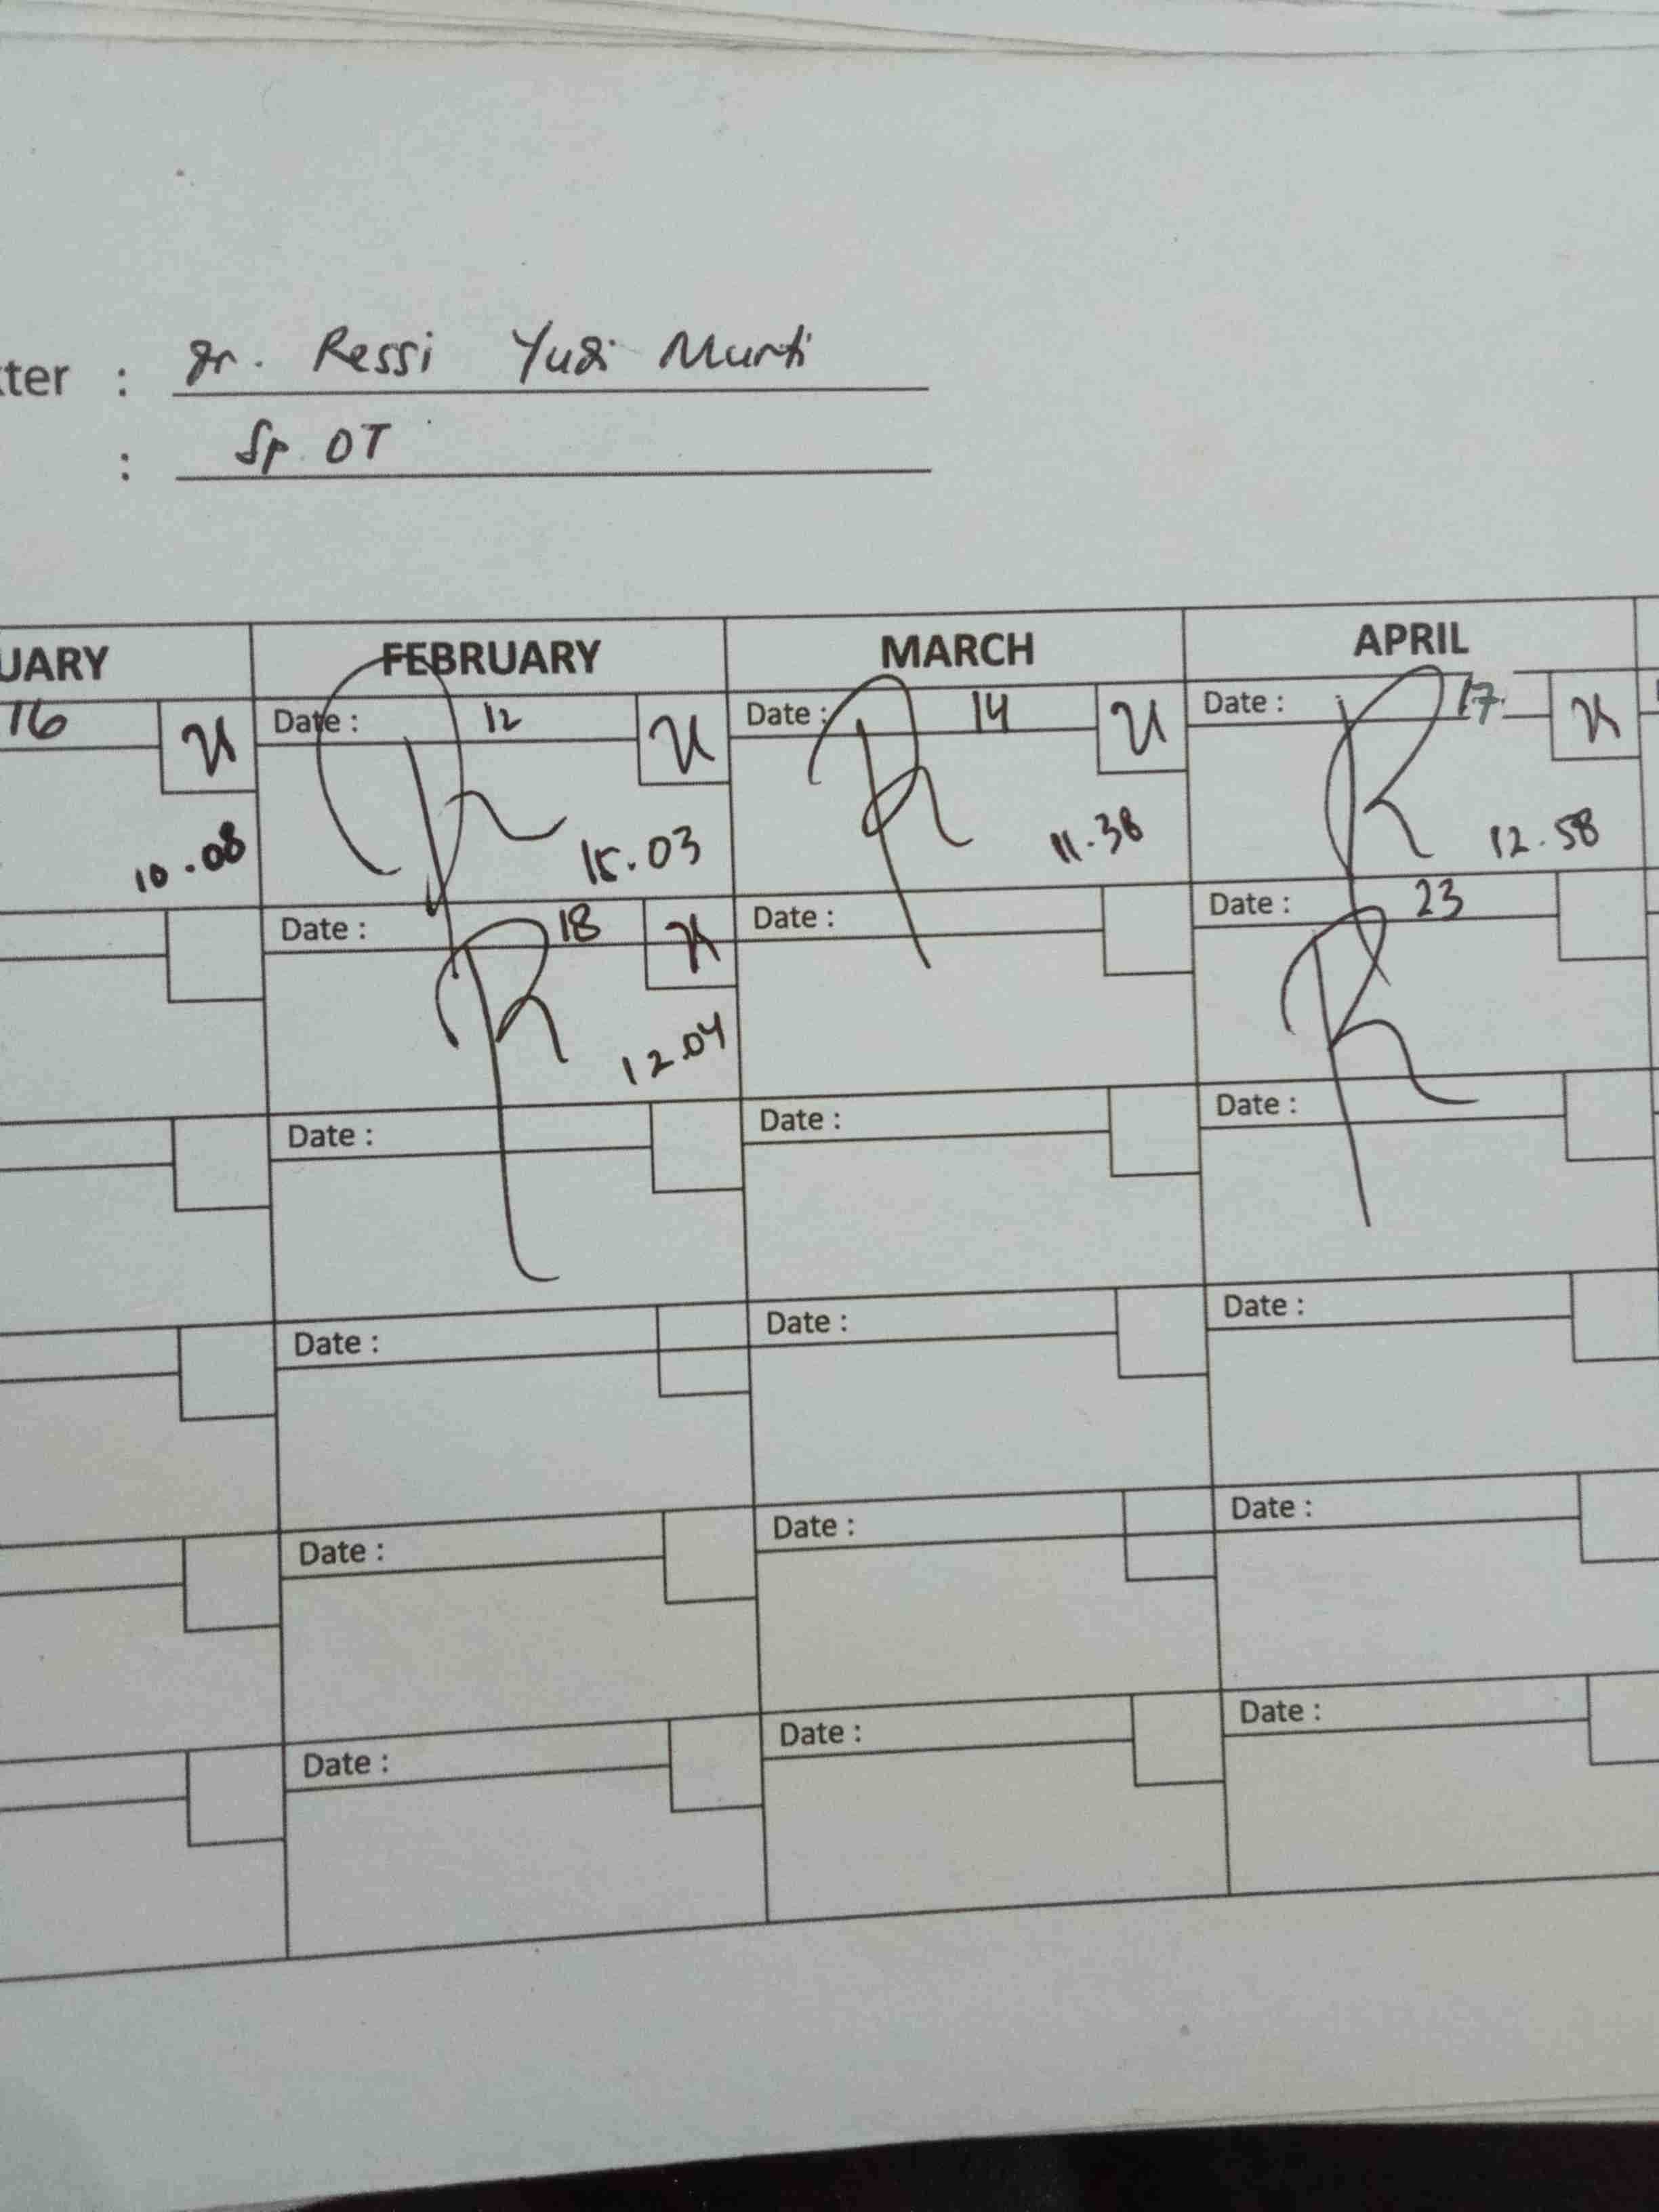 ter : dr. Ressi Yudi Murti
: Sp. OT
UARY FEBRUARY MARCH APRIL
16 Date : 12 Date : 14 Date : 17
10.08 15.03 11.38 12.58
Date : 18 Date : Date : 23
12.04
Date : Date : Date :
Date : Date : Date :
Date : Date : Date :
Date : Date : Date :